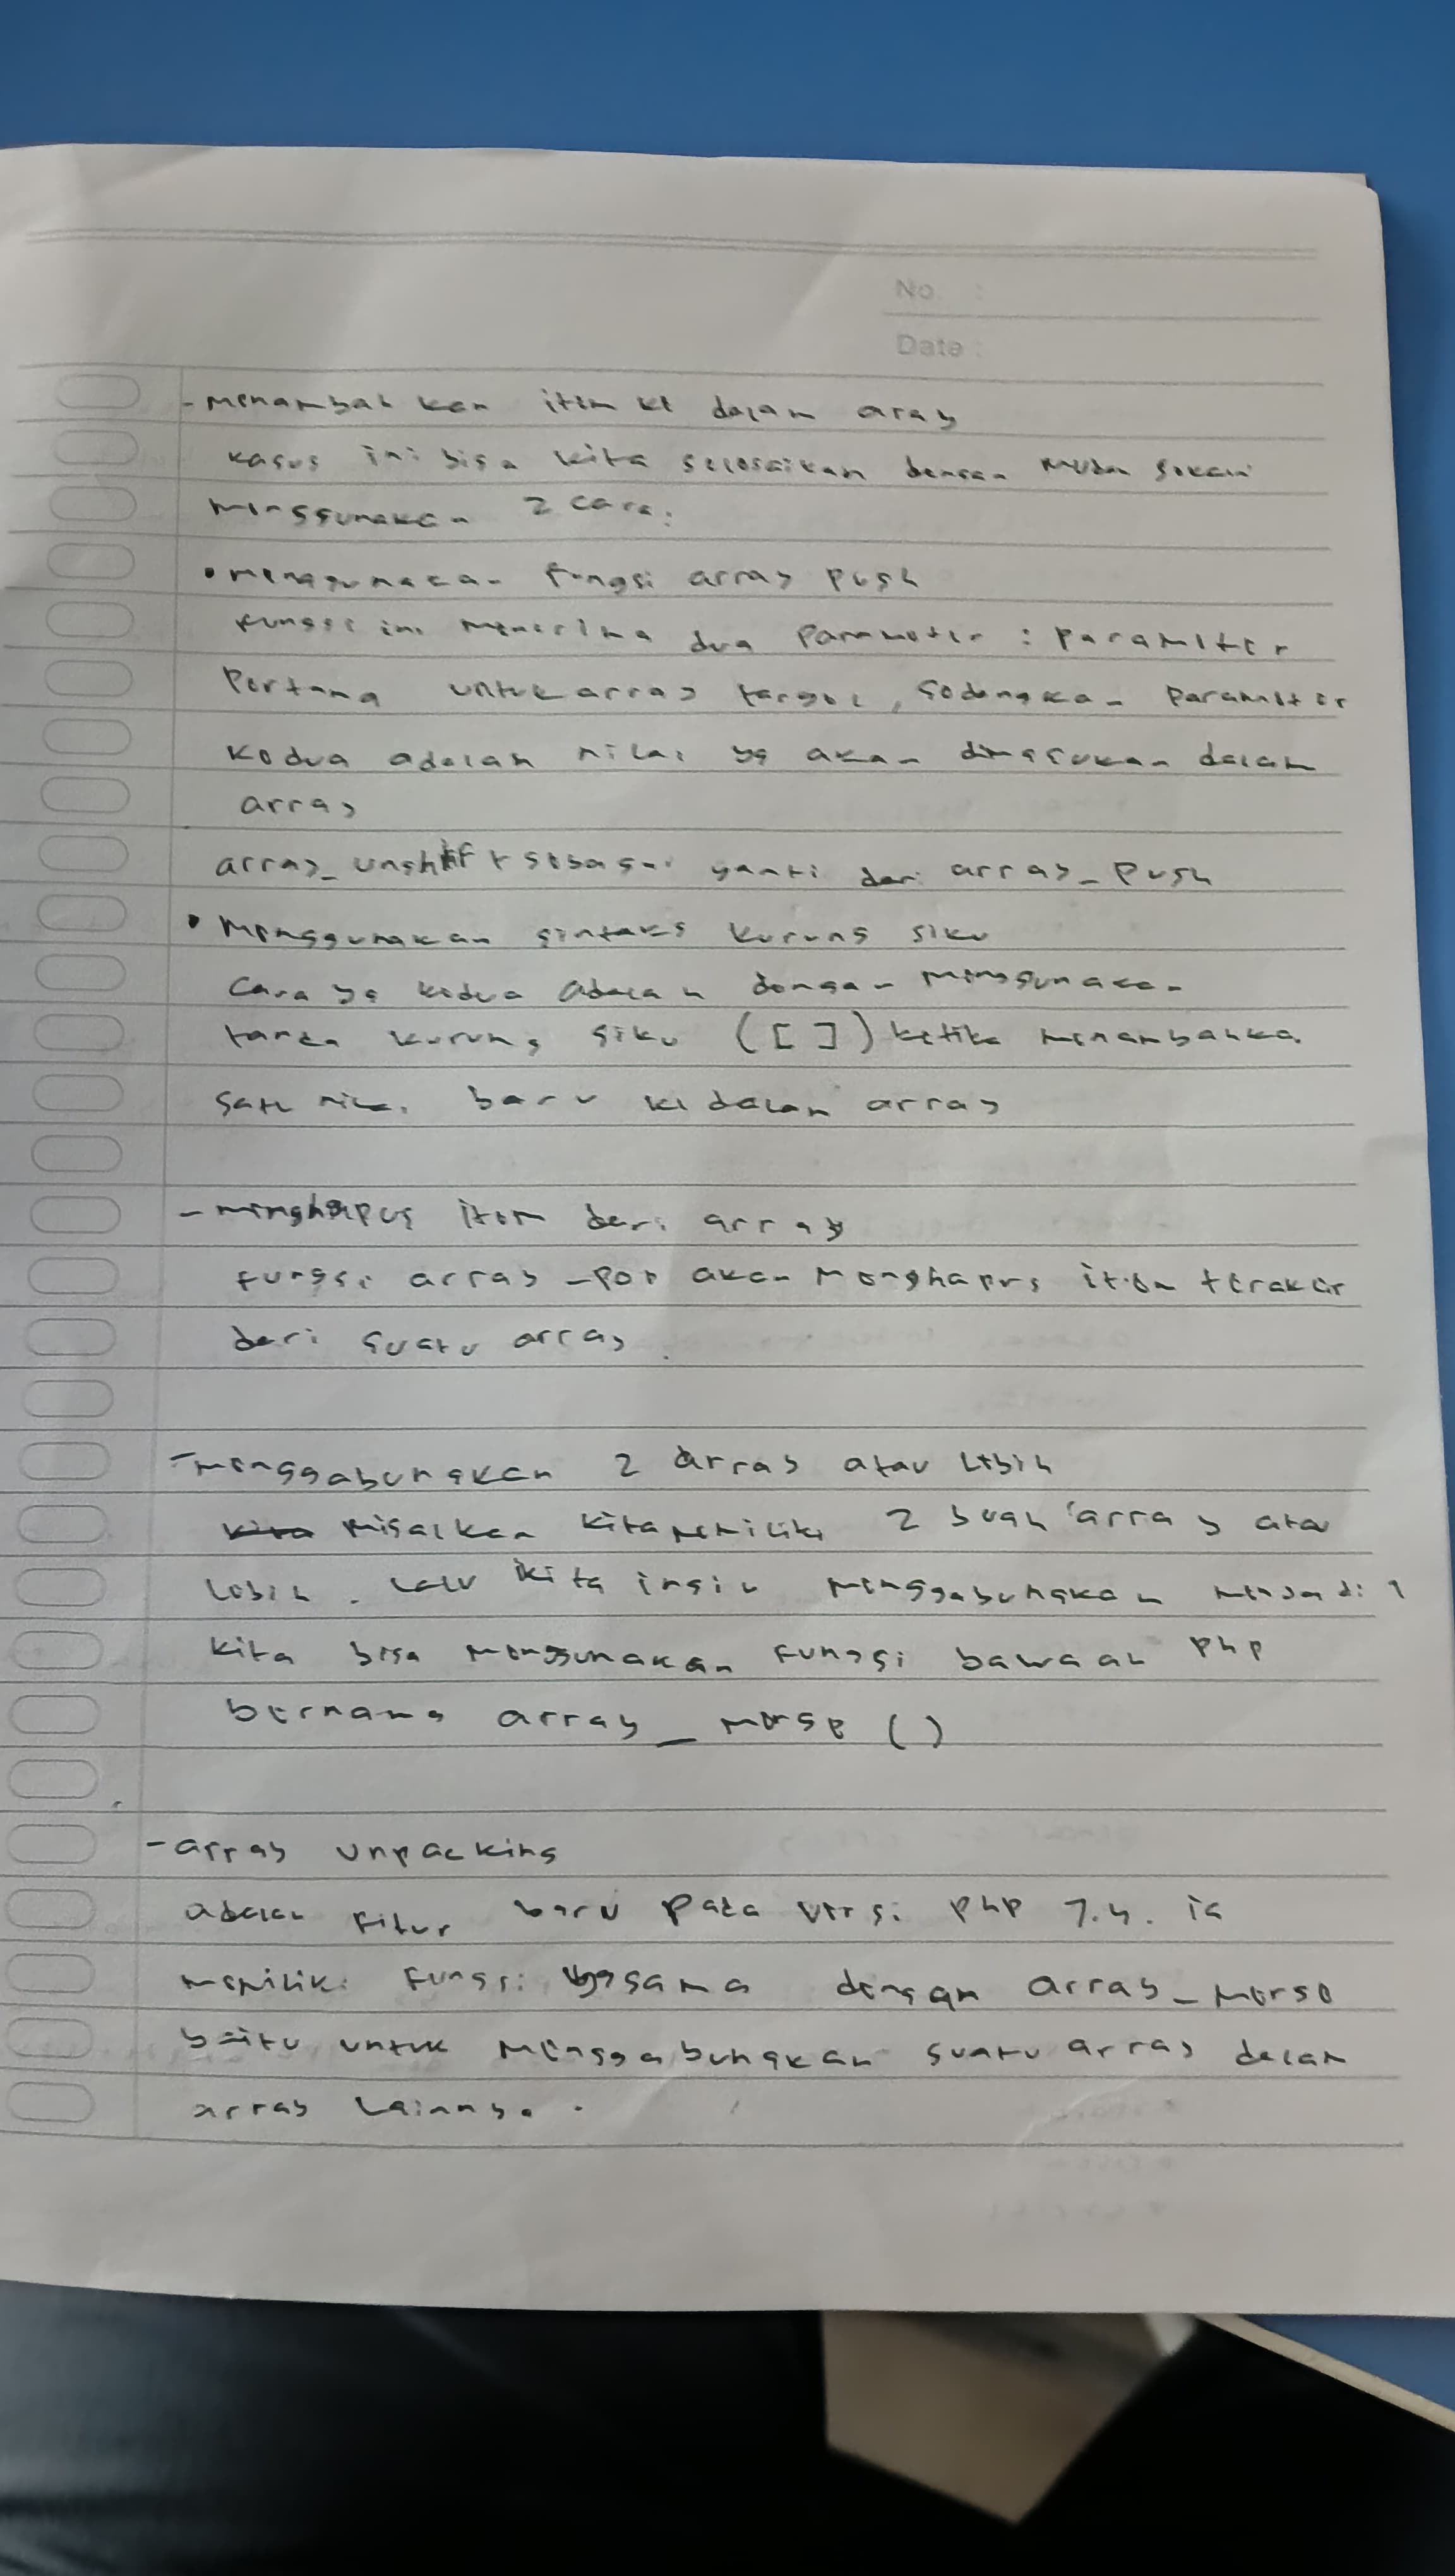 No :
Date :
- menambahkan item ke dalam aray
kasus ini bisa kita selesaikan dengan mudah sekali
menggunakan 2 cara:
• menggunakan fungsi array push
fungsi ini menerima dua parameter : parameter
Pertama untuk array target, sedangkan parameter
kedua adalah nilai yg akan dimasukan dalam
array
array_unshift sebagai ganti dari array_push
• Menggunakan sintaks kurung siku
Cara yg kedua adalah dengan menggunakan
tanda kurung siku ([ ]) ketika menambahkan
satu nilai baru ke dalam array
- menghapus item dari array
fungsi array_pop akan menghapus item terakir
dari suatu array
- menggabungkan 2 array atau lebih
kita misalkan kita memiliki 2 buah array atau
lebih. lalu kita ingin menggabungkan menjadi 1
kita bisa menggunakan fungsi bawaan php
bernama array_merge ()
- array unpacking
adalah fitur baru pada versi php 7.4. ia
memiliki fungsi yg sama dengan array_merge
yaitu untuk menggabungkan suatu array dalam
array lainnya.